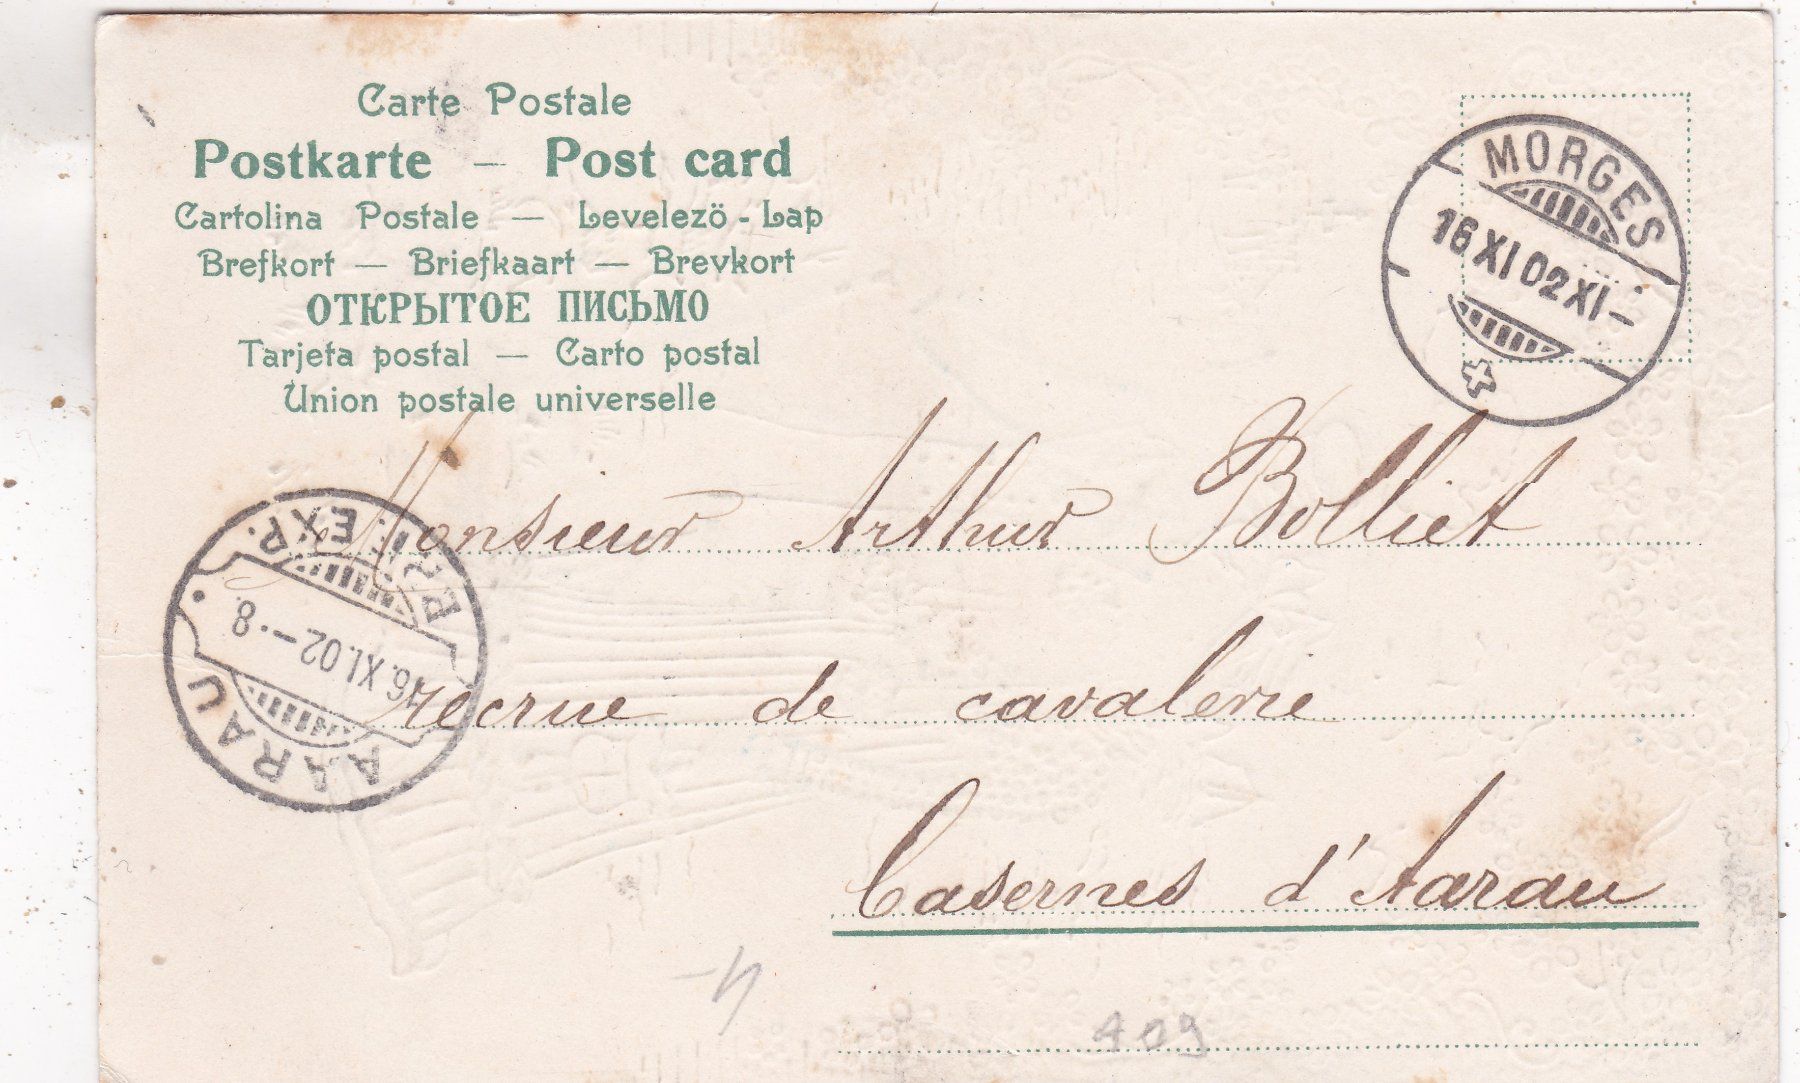 Carte Postale
Postkarte — Post card
Cartolina Postale — Levelezö - Lap
Brefkort — Briefkaart — Brevkort
ОТКРЫТОЕ ПИСЬМО
Tarjeta postal — Carto postal
Union postale universelle
MORGES
16 XI 02 XI –
Monsieur Arthur Bolliet
recrue de cavalerie
Casernes d'Aarau
AARAU
16.XI.02 –.8.
EXP.
409